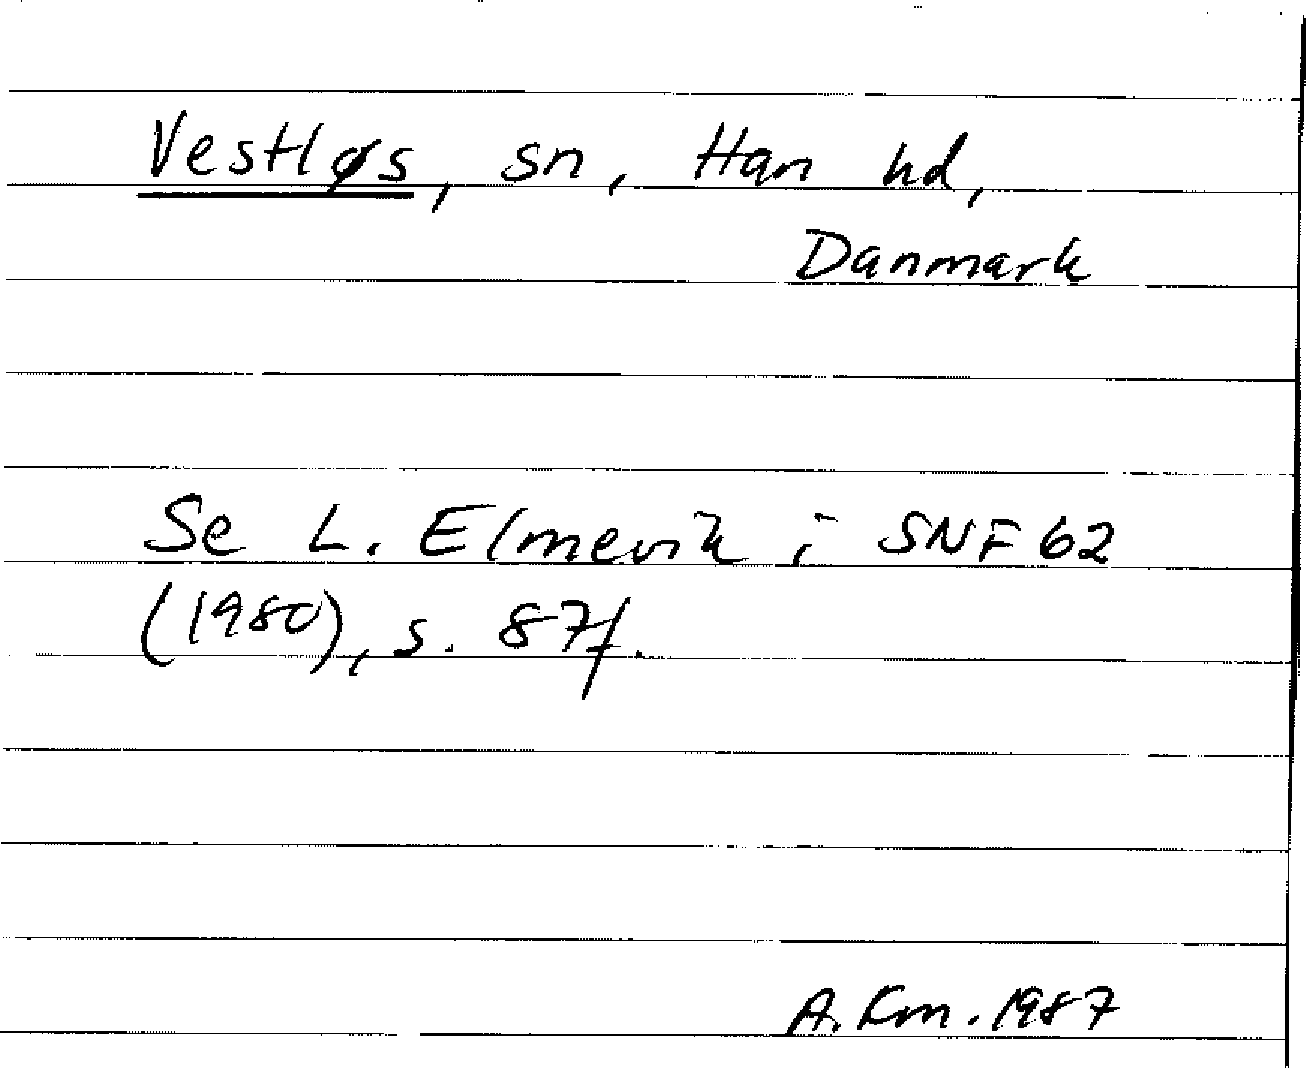 Vestløs, sn, Han hd,
Danmark
Se L. Elmevik i SNF 62
(1980), s. 87f.
A. Km. 1987